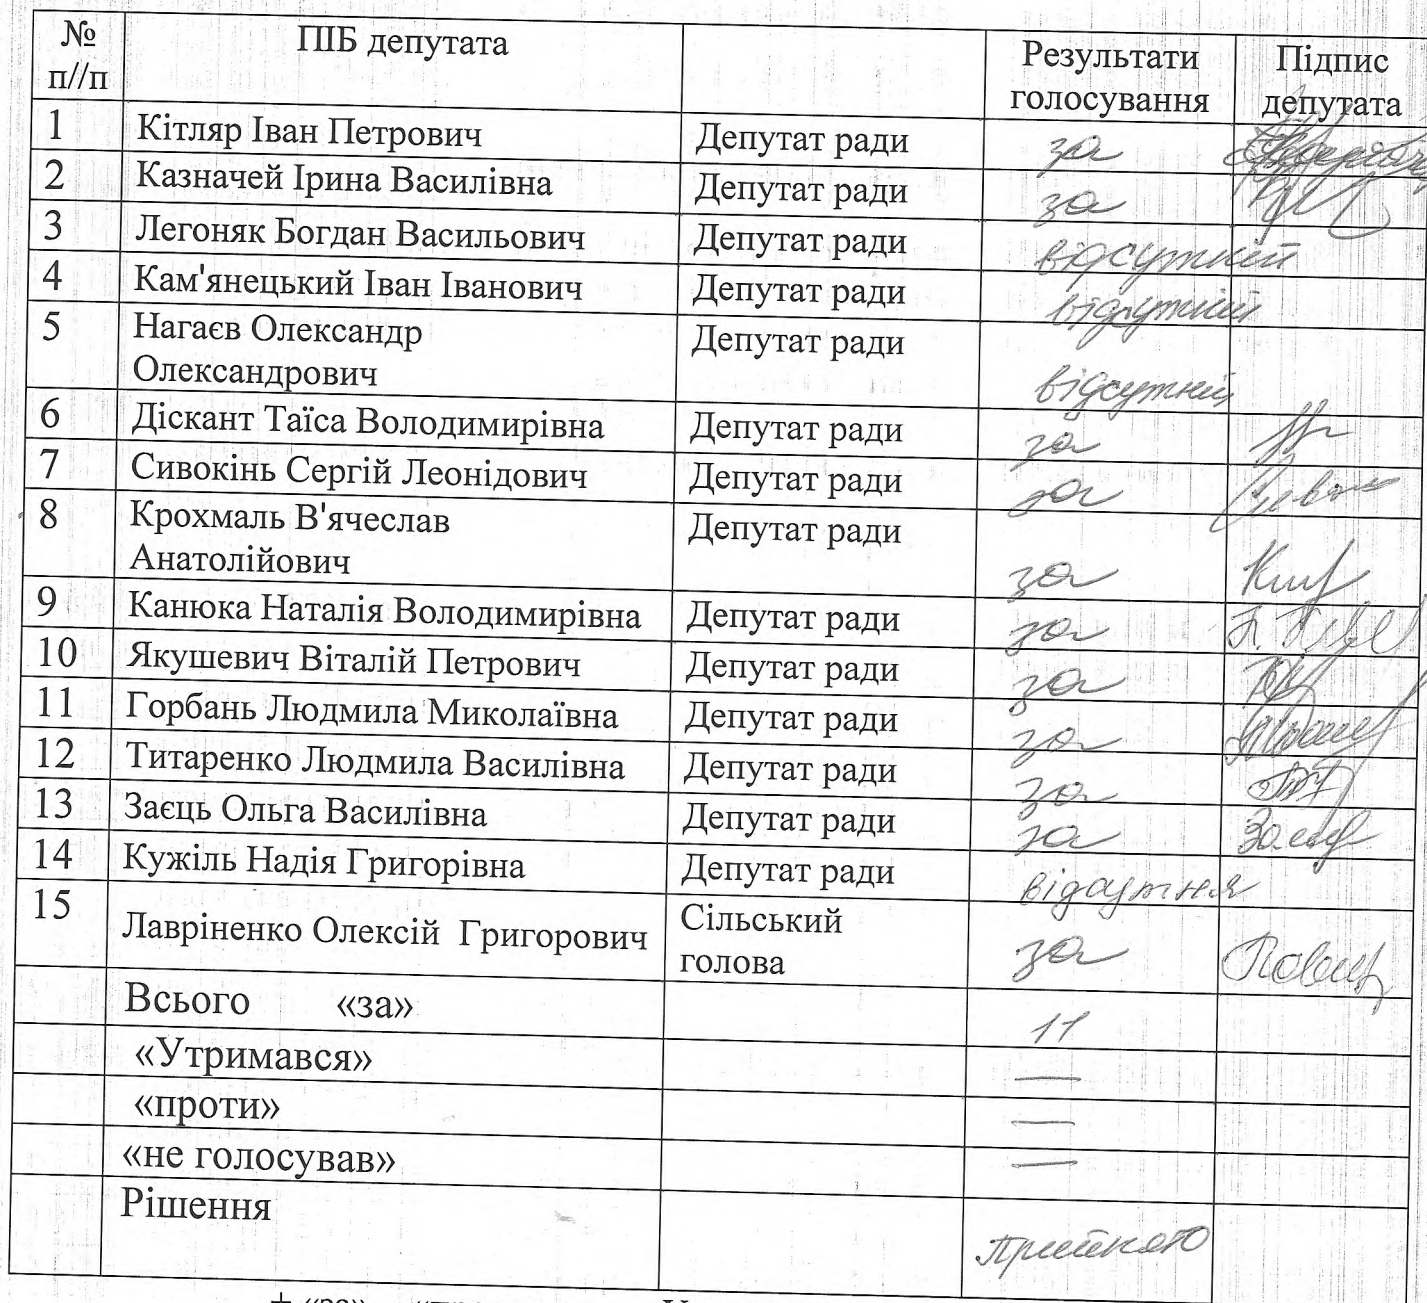 № п//п ПІБ депутата Результати голосування Підпис депутата
1 Кітляр Іван Петрович Депутат ради за
2 Казначей Ірина Василівна Депутат ради за
3 Легоняк Богдан Васильович Депутат ради відсутній
4 Кам'янецький Іван Іванович Депутат ради відсутній
5 Нагаєв Олександр Депутат ради
Олександрович відсутній
6 Діскант Таїса Володимирівна Депутат ради за
7 Сивокінь Сергій Леонідович Депутат ради за
8 Крохмаль В'ячеслав Депутат ради
Анатолійович за
9 Канюка Наталія Володимирівна Депутат ради за
10 Якушевич Віталій Петрович Депутат ради за
11 Горбань Людмила Миколаївна Депутат ради за
12 Титаренко Людмила Василівна Депутат ради за
13 Заєць Ольга Василівна Депутат ради за
14 Кужіль Надія Григорівна Депутат ради відсутня
15 Лавріненко Олексій Григорович Сільський голова за
Всього «за» 11
«Утримався» —
«проти» —
«не голосував» —
Рішення прийнято